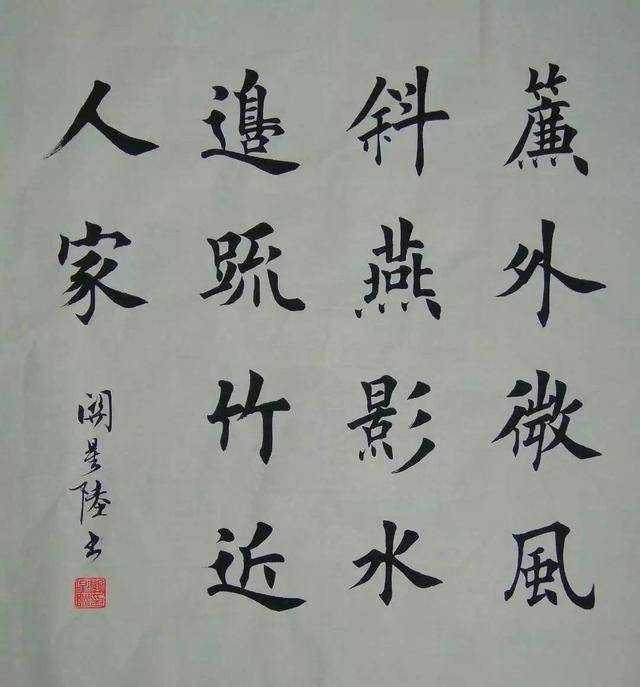 簾外微風
斜燕影水
邉疏竹近
人家
関星陸书